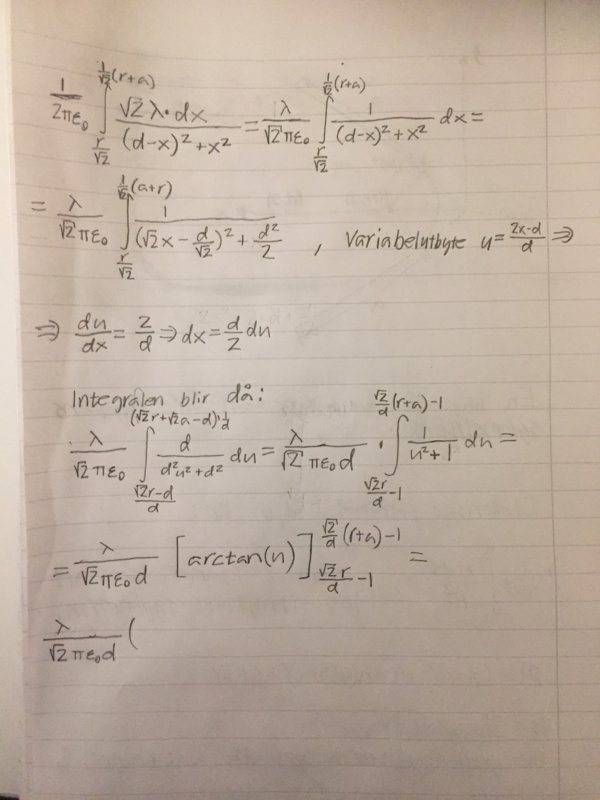 1/(2πε₀) ∫_{r/√2}^{1/√2 (r+a)} √2 λ·dx/((d-x)²+x²) = λ/(√2 πε₀) ∫_{r/√2}^{1/√2 (r+a)} 1/((d-x)²+x²) dx =
= λ/(√2 πε₀) ∫_{r/√2}^{1/√2 (a+r)} 1/((√2x - d/√2)² + d²/2) , Variabelutbyte u = (2x-d)/d ⇒
⇒ du/dx = 2/d ⇒ dx = d/2 du
Integralen blir då:
λ/(√2 πε₀) ∫_{(√2r-d)/d}^{(√2r+√2a-d)·1/d} d/(d²u²+d²) du = λ/(√2 πε₀d) · ∫_{√2r/d -1}^{√2/d (r+a)-1} 1/(u²+1) du =
= λ/(√2 πε₀d) [arctan(u)]_{√2r/d -1}^{√2/d (r+a)-1} =
λ/(√2 πε₀d) (